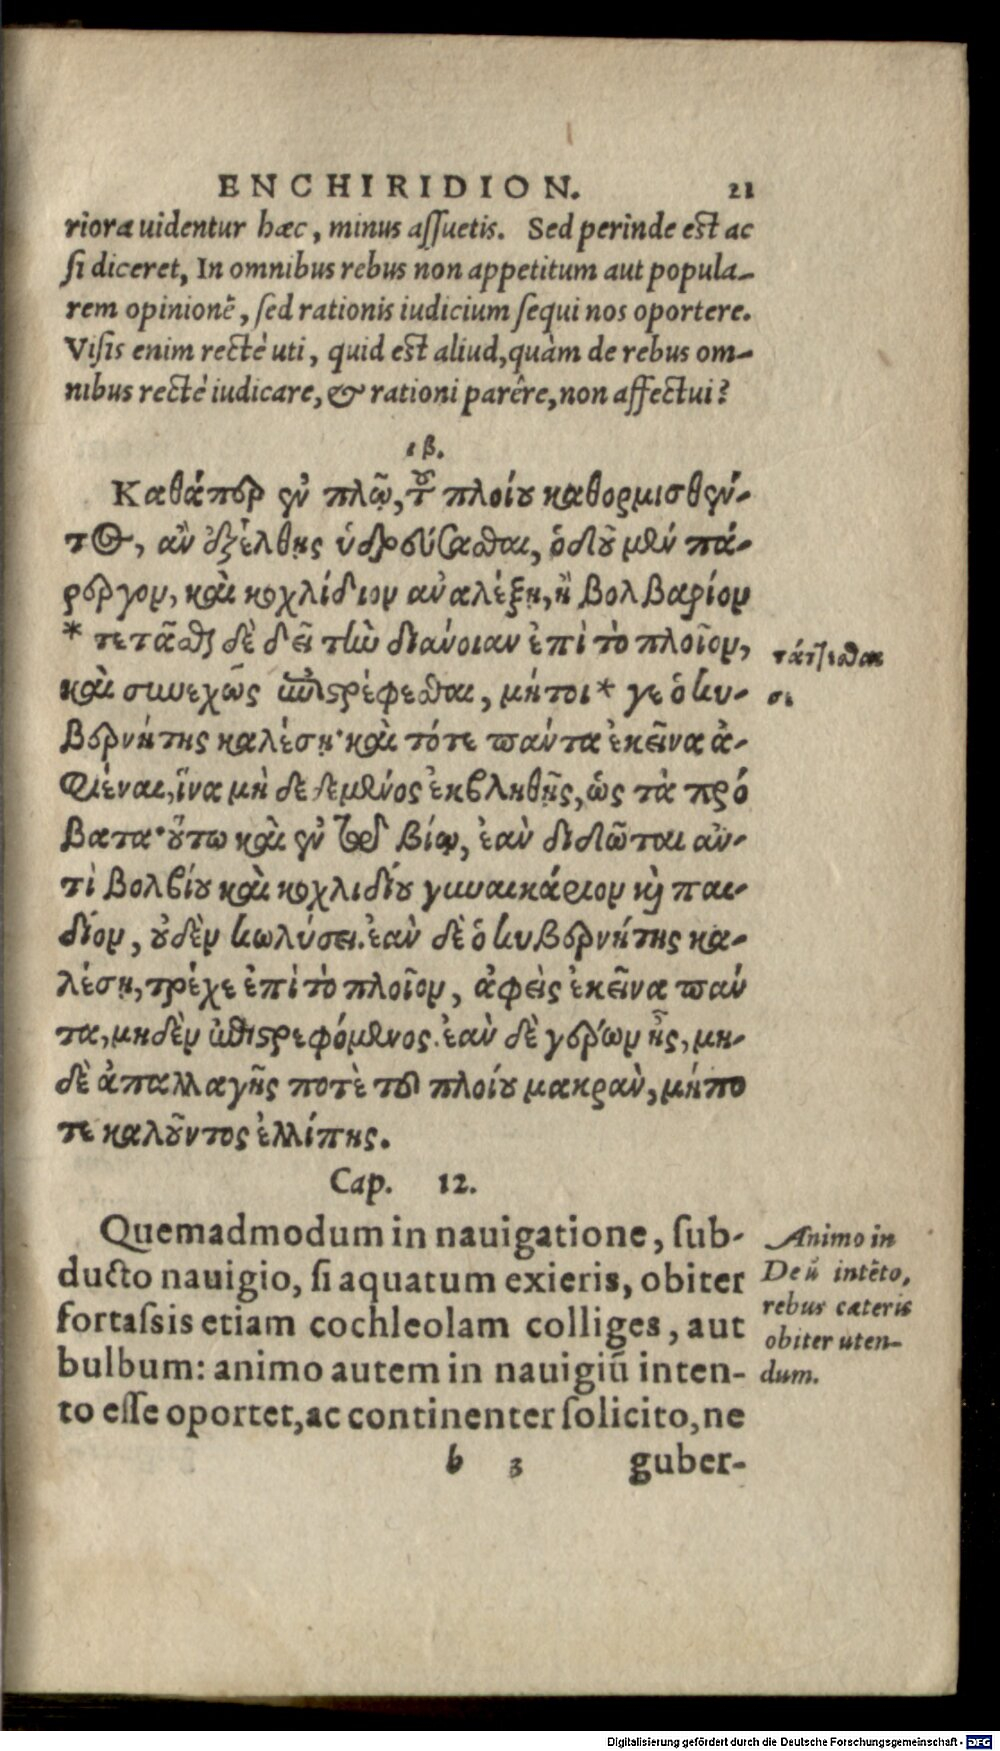 ENCHIRIDION. 21
riora uidentur hæc, minus assuetis. Sed perinde est ac
si diceret, In omnibus rebus non appetitum aut popula-
rem opinionē, sed rationis iudicium sequi nos oportere.
Visis enim rectè uti, quid est aliud, quàm de rebus om-
nibus rectè iudicare, & rationi parêre, non affectui?
ιβ.
Καθάπερ ἐν πλῷ, τοῦ πλοίου καθορμισθέν-
τος, ἂν ἐξέλθῃς ὑδρεύσασθαι, ὁδοῦ μὲν πά-
ρεργον, καὶ κοχλίδιον ἀναλέξῃ, ἢ βολβαρίον
* τετᾶσθαι δὲ δεῖ τὴν διάνοιαν ἐπὶ τὸ πλοῖον,
τάττεσθαι
καὶ συνεχῶς ἐπιστρέφεσθαι, μήτοι * γε ὁ κυ-
σι
βερνήτης καλέσῃ· καὶ τότε πάντα ἐκεῖνα ἀ-
φιέναι, ἵνα μὴ δεδεμένος ἐκβληθῇς, ὡς τὰ πρό
βατα· οὕτω καὶ ἐν τῷ βίῳ, ἐὰν διδῶται ἀν-
τὶ βολβίου καὶ κοχλιδίου γυναικάριον καὶ παι-
δίον, οὐδὲν κωλύσει. ἐὰν δὲ ὁ κυβερνήτης κα-
λέσῃ, τρέχε ἐπὶ τὸ πλοῖον, ἀφεὶς ἐκεῖνα πάν
τα, μηδὲν ἐπιστρεφόμενος. ἐὰν δὲ γέρων ᾖς, μη-
δὲ ἀπαλλαγῇς ποτὲ τοῦ πλοίου μακρὰν, μήπο
τε καλοῦντος ἐλλίπῃς.
Cap. 12.
Quemadmodum in nauigatione, sub-
ducto nauigio, si aquatum exieris, obiter
fortassis etiam cochleolam colliges, aut
bulbum: animo autem in nauigiū inten-
to esse oportet, ac continenter solicito, ne
Animo in
Deū intēto,
rebus cæteris
obiter uten-
dum.
b 3 guber-
Digitalisierung gefördert durch die Deutsche Forschungsgemeinschaft - DFG